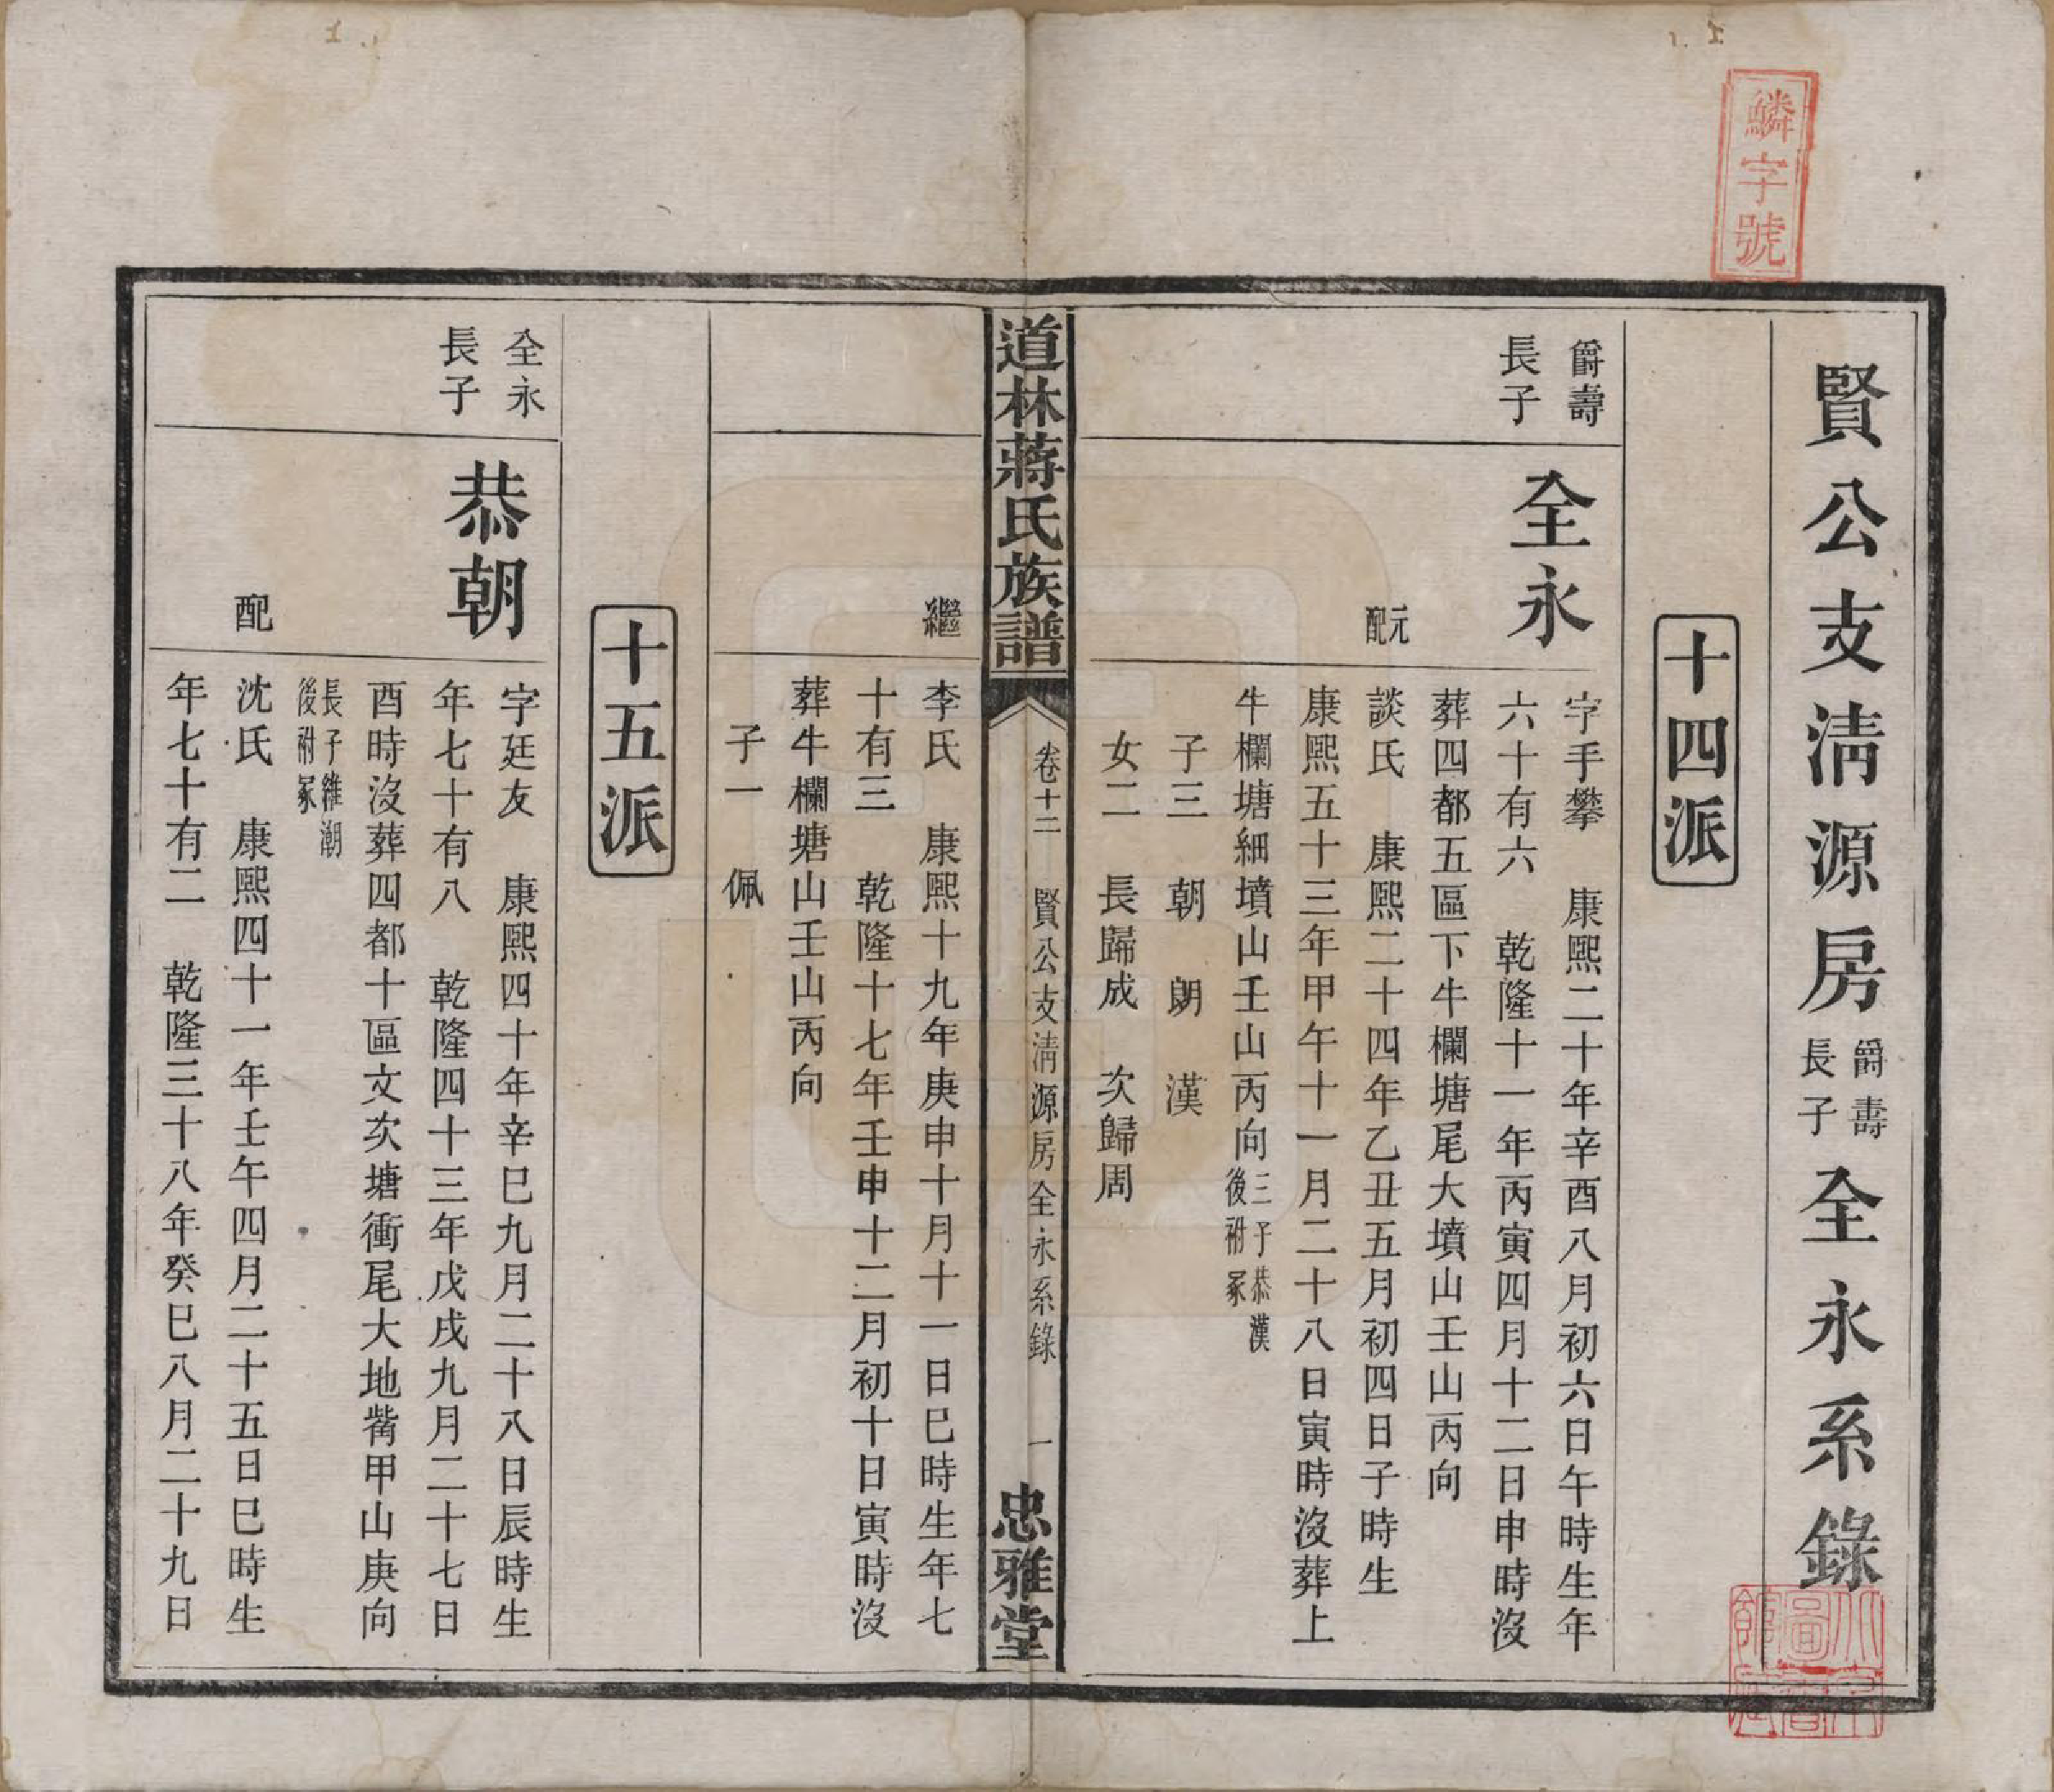 鱗字號
賢公支淸源房爵壽長子全永系錄
十四派
爵壽
長子
全永
字手攀　康熙二十年辛酉八月初六日午時生年
六十有六　乾隆十一年丙寅四月十二日申時沒
葬四都五區下牛欄塘尾大墳山壬山丙向
元配
談氏　康熙二十四年乙丑五月初四日子時生
康熙五十三年甲午十一月二十八日寅時沒葬上
牛欄塘細墳山壬山丙向三子恭漢後祔冢
子三　朝　朗　漢
女二　長歸成　次歸周
道林蔣氏族譜
卷十二　賢公支淸源房全永系錄　一
忠雅堂
繼
李氏　康熙十九年庚申十月十一日巳時生年七
十有三　乾隆十七年壬申十二月初十日寅時沒
葬牛欄塘山壬山丙向
子一　佩
十五派
全永
長子
恭朝
字廷友　康熙四十年辛巳九月二十八日辰時生
年七十有八　乾隆四十三年戊戌九月二十七日
酉時沒葬四都十區文次塘衝尾大地觜甲山庚向
長子維潮
後祔冢
配
沈氏　康熙四十一年壬午四月二十五日巳時生
年七十有二　乾隆三十八年癸巳八月二十九日